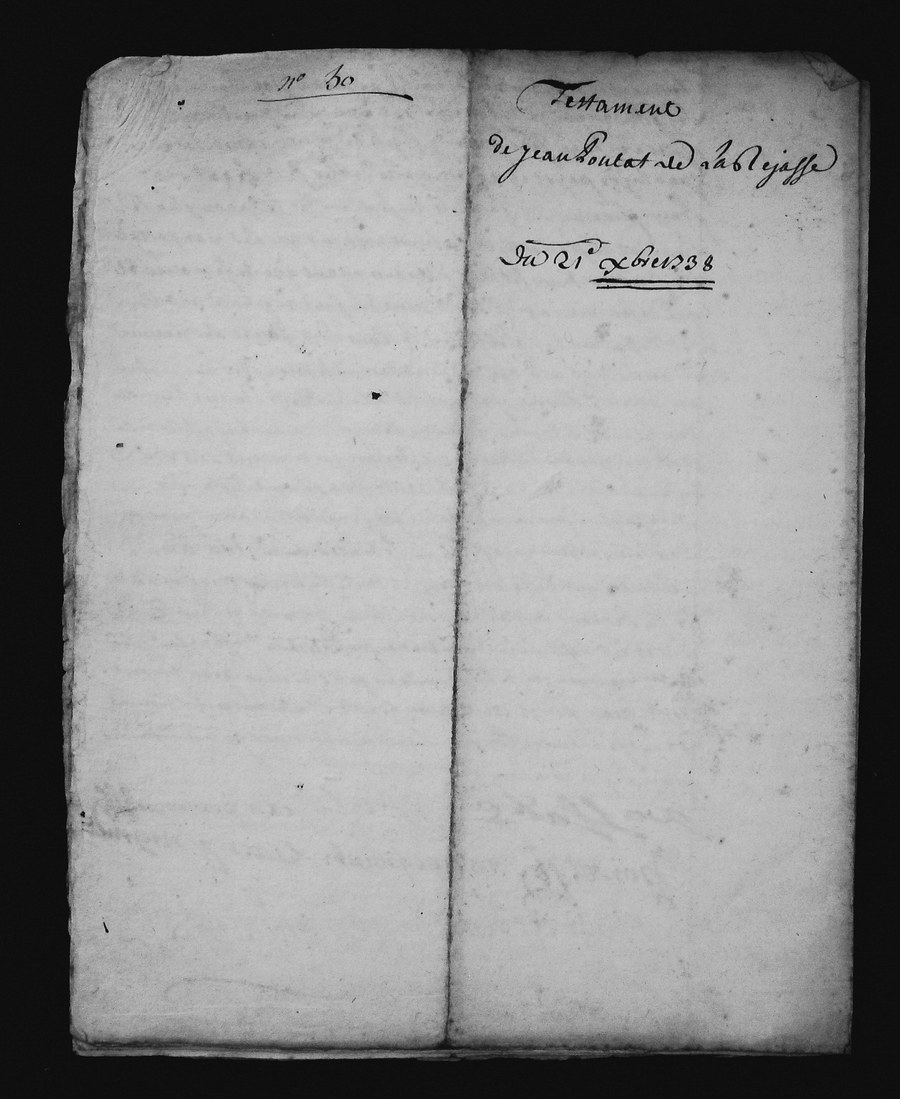 n° 50
Testament
de jean Poulat de La Rejasse
du 21e xbre 1738